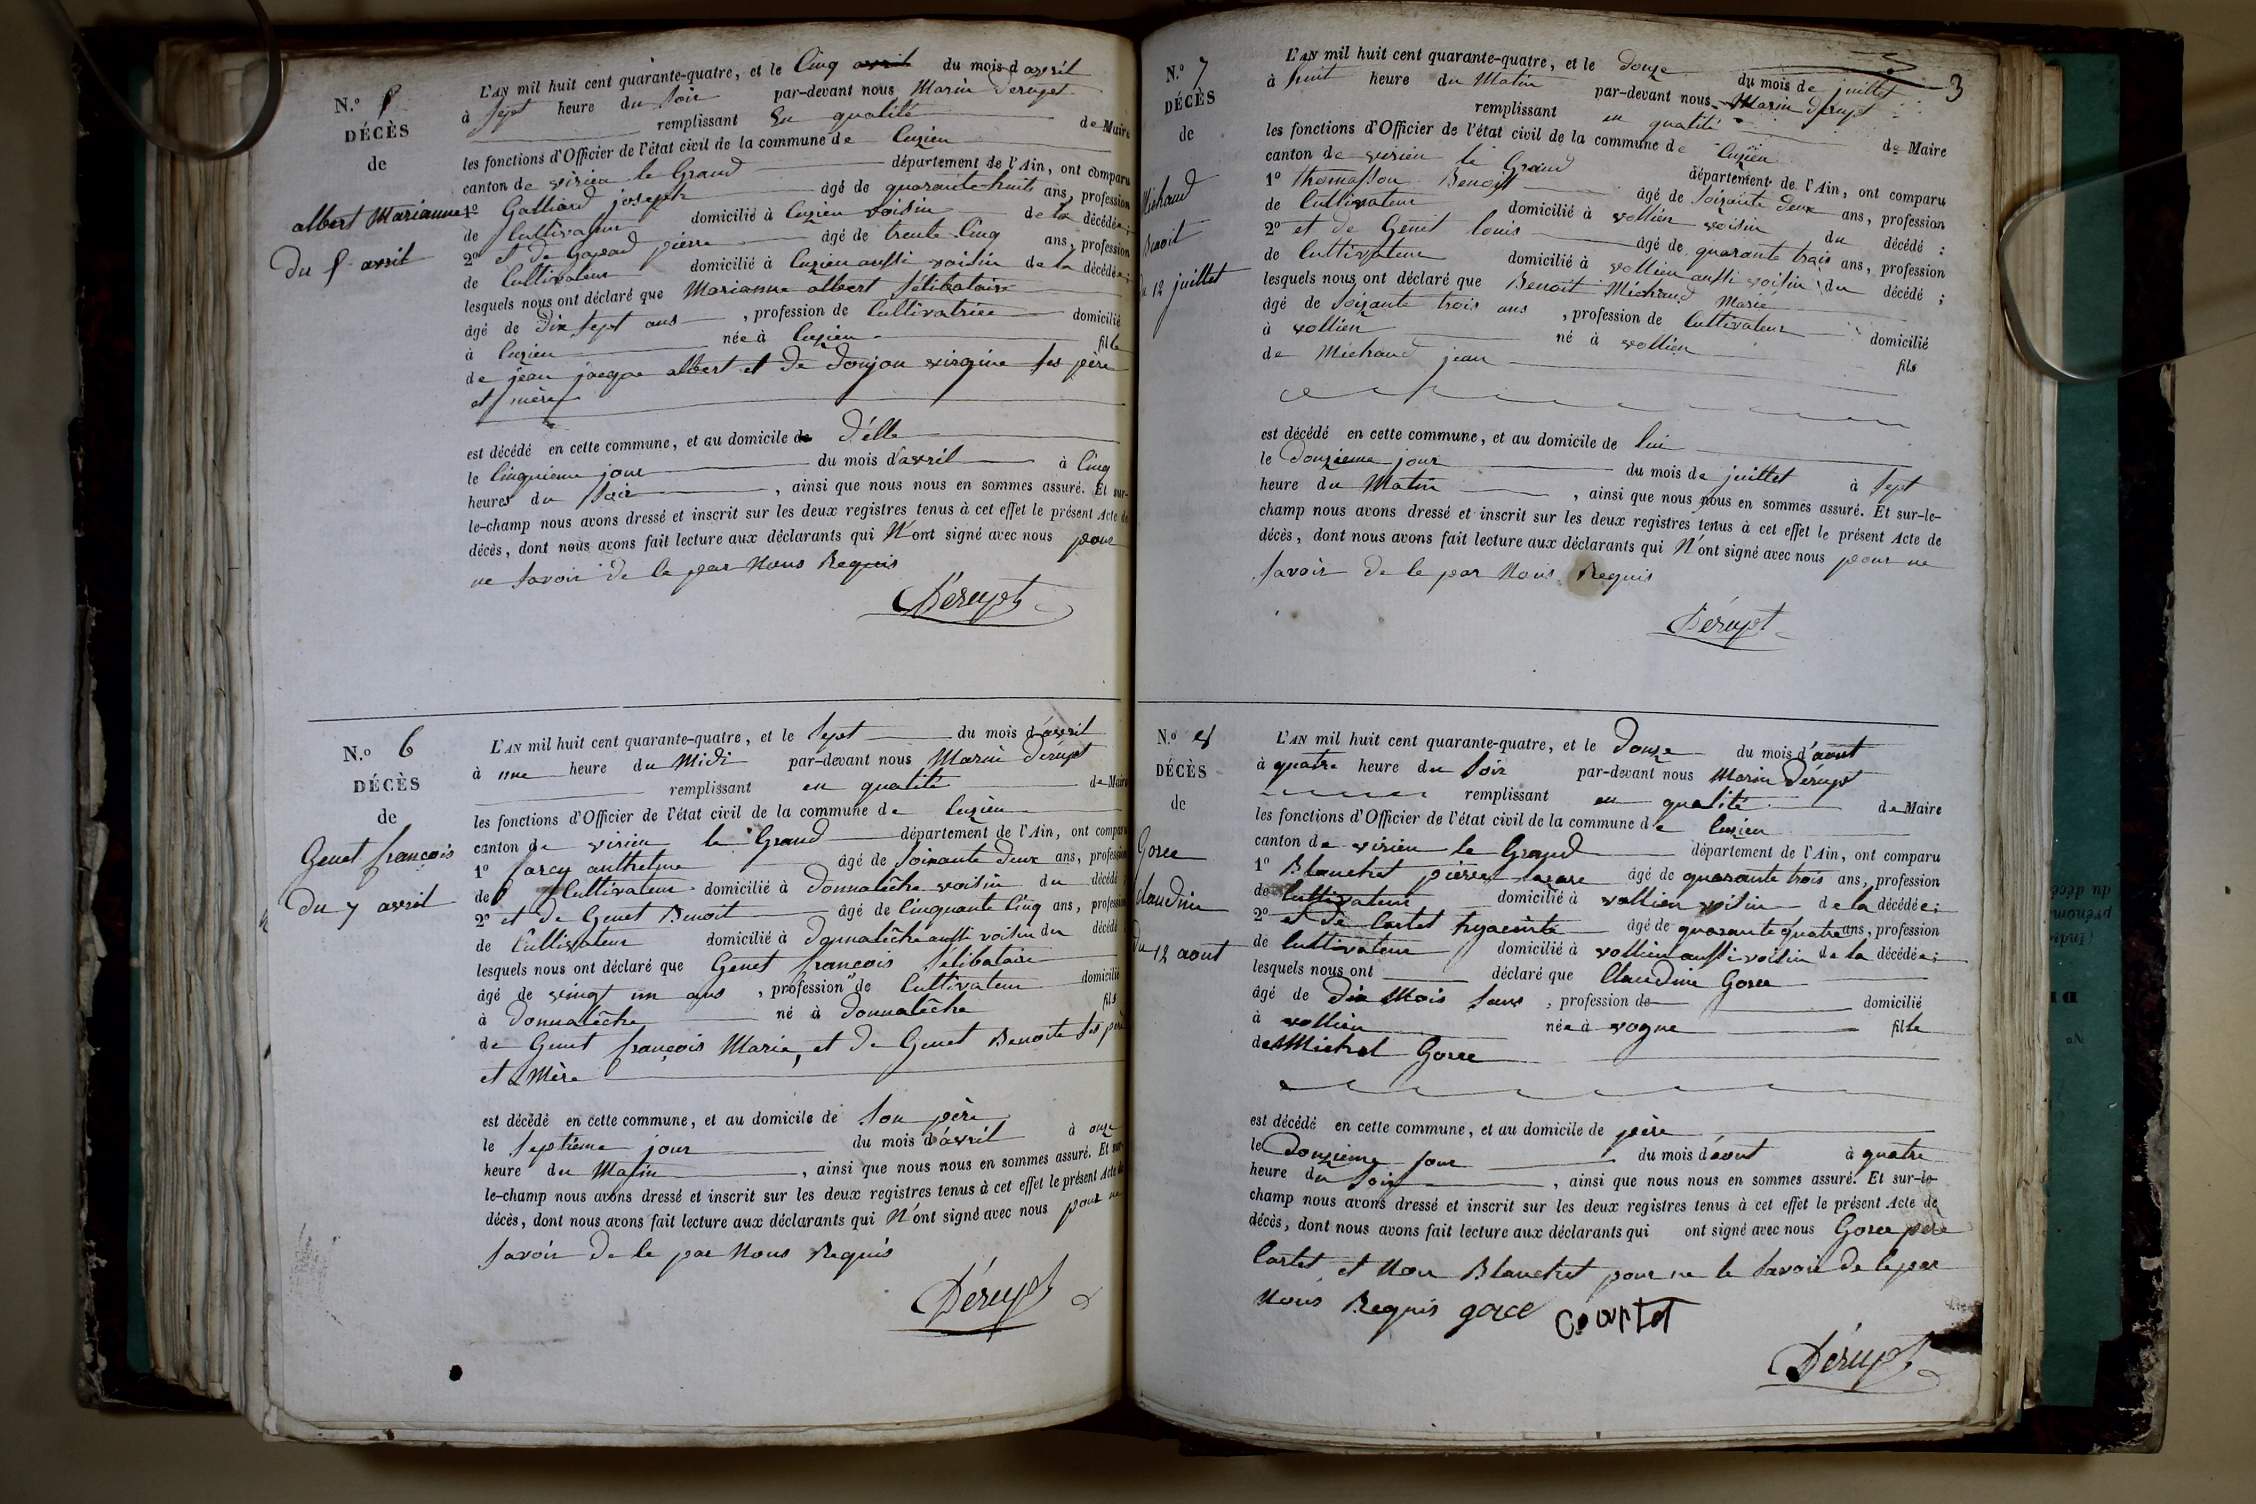 N.º 5
DÉCÈS
de
albert Marianne
Du 5 avril
L'AN mil huit cent quarante-quatre, et le Cinq avril du mois d'avril
à Sept heure du Soir par-devant nous Marin Deruyet
remplissant En qualité de Maire
les fonctions d'Officier de l'état civil de la commune de Cuzieu
canton de virieu le Grand département de l'Ain, ont comparu
1º Galliard joseph âgé de quarante-huit ans, profession
de Cultivateur domicilié à Cuzieu voisin de la décédée;
2º et de pierre âgé de trente Cinq ans, profession
de Cultivateur domicilié à Cuzieu aussi voisin de la décédée;
lesquels nous ont déclaré que Marianne albert Sélibataire
âgé de Dix Sept ans, profession de Cultivatrice domicilié
à Cuzieu née à Cuzieu fille
de jean jacque albert et de Donjon virginie Ses père
et mère
est décédé en cette commune, et au domicile de D'elle
le Cinquieme jour du mois d'avril à Cinq
heures du Soir, ainsi que nous nous en sommes assuré. Et sur-
le-champ nous avons dressé et inscrit sur les deux registres tenus à cet effet le présent Acte de
décès, dont nous avons fait lecture aux déclarants qui N'ont signé avec nous pour
ne Savoir de le par Nous Requis
Déruyet
N.º 6
DÉCÈS
de
Genet françois
Du 7 avril
L'AN mil huit cent quarante-quatre, et le Sept du mois d'avril
à une heure du Midi par-devant nous Marin Déruyet
remplissant en qualité de Maire
les fonctions d'Officier de l'état civil de la commune de Cuzieu
canton de virieu le Grand département de l'Ain, ont comparu
1º anthelme âgé de Soixante Deux ans, profession
de Cultivateur domicilié à Donnalèche voisin du décédé;
2º et de Genet Benoit âgé de Cinquante Cinq ans, profession
de Cultivateur domicilié à Donnalèche aussi voisin du décédé;
lesquels nous ont déclaré que Genet françois Sélibataire
âgé de vingt un ans, profession de Cultivateur domicilié
à Donnalèche né à Donnalèche fils
de Genet françois Marie, et de Genet Benoite Ses père
et Mère
est décédé en cette commune, et au domicile de Son père
le Septième jour du mois d'avril à onze
heure du Matin, ainsi que nous nous en sommes assuré. Et sur-
le-champ nous avons dressé et inscrit sur les deux registres tenus à cet effet le présent Acte de
décès, dont nous avons fait lecture aux déclarants qui N'ont signé avec nous pour ne
Savoir De le par Nous Requis
Déruyet
3
N.º 7
DÉCÈS
de
Michaud
Benoit
12 juillet
L'AN mil huit cent quarante-quatre, et le Douze du mois de juillet
à huit heure du Matin par-devant nous Marin deruyet
remplissant en qualité de Maire
les fonctions d'Officier de l'état civil de la commune de Cuzieu
canton de virieu le Grand département de l'Ain, ont comparu
1º thomasson Benoit âgé de Soixante deux ans, profession
de Cultivateur domicilié à vollien voisin du décédé;
2º et de Genet louis âgé de quarante trois ans, profession
de Cultivateur domicilié à vollien aussi voisin du décédé;
lesquels nous ont déclaré que Benoit Michaud Marié
âgé de Soixante trois ans, profession de Cultivateur domicilié
à vollien né à vollien fils
de Michaud jean
est décédé en cette commune, et au domicile de lui
le Douzieme jour du mois de juillet à Sept
heure du Matin, ainsi que nous nous en sommes assuré. Et sur-le-
champ nous avons dressé et inscrit sur les deux registres tenus à cet effet le présent Acte de
décès, dont nous avons fait lecture aux déclarants qui N'ont signé avec nous pour ne
Savoir de le par Nous Requis
Déruyet
N.º 8
DÉCÈS
de
Gorce
Claudine
Du 12 aout
L'AN mil huit cent quarante-quatre, et le Douze du mois d'aout
à quatre heure du Soir par-devant nous Marin Déruyet
remplissant en qualité de Maire
les fonctions d'Officier de l'état civil de la commune de Cuzieu
canton de virieu le Grand département de l'Ain, ont comparu
1º Blanchet pierre lazare âgé de quarante trois ans, profession
de Cultivateur domicilié à vollien voisin de la décédée;
2º et de Cortet hyacinte âgé de quarante quatre ans, profession
de Cultivateur domicilié à vollien aussi voisin de la décédée;
lesquels nous ont déclaré que Claudine Gorce
âgé de Dix Mois Sans, profession de domicilié
à vollien née à vogne fille
de Michel Gorce
est décédé en cette commune, et au domicile de père
le Douzieme jour du mois d'aout à quatre
heure du Soir, ainsi que nous nous en sommes assuré. Et sur-le-
champ nous avons dressé et inscrit sur les deux registres tenus à cet effet le présent Acte de
décès, dont nous avons fait lecture aux déclarants qui ont signé avec nous Gorce père
Cortet et Non Blanchet pour ne le Savoir De le par
Nous Requis gorce Courtet
Déruyet